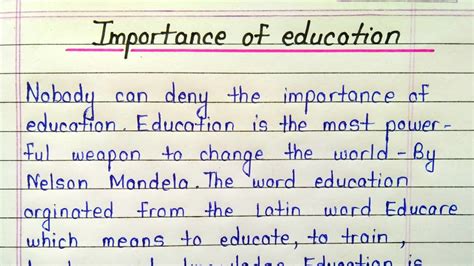 Importance of education
Nobody can deny the importance of
education. Education is the most power-
ful weapon to change the world - By
Nelson Mandela. The word education
orginated from the Latin word Educare
which means to educate, to train,
knowledge Education is